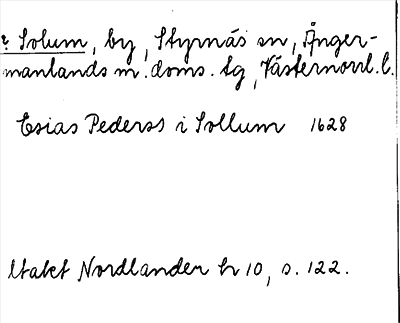 ? Solum, by, Styrnäs sn, Ånger-
manlands m. doms. tg, Västernorrl. l.
Esias Pederss i Sollum 1628
Utakt Nordlander hr 10, s. 122.